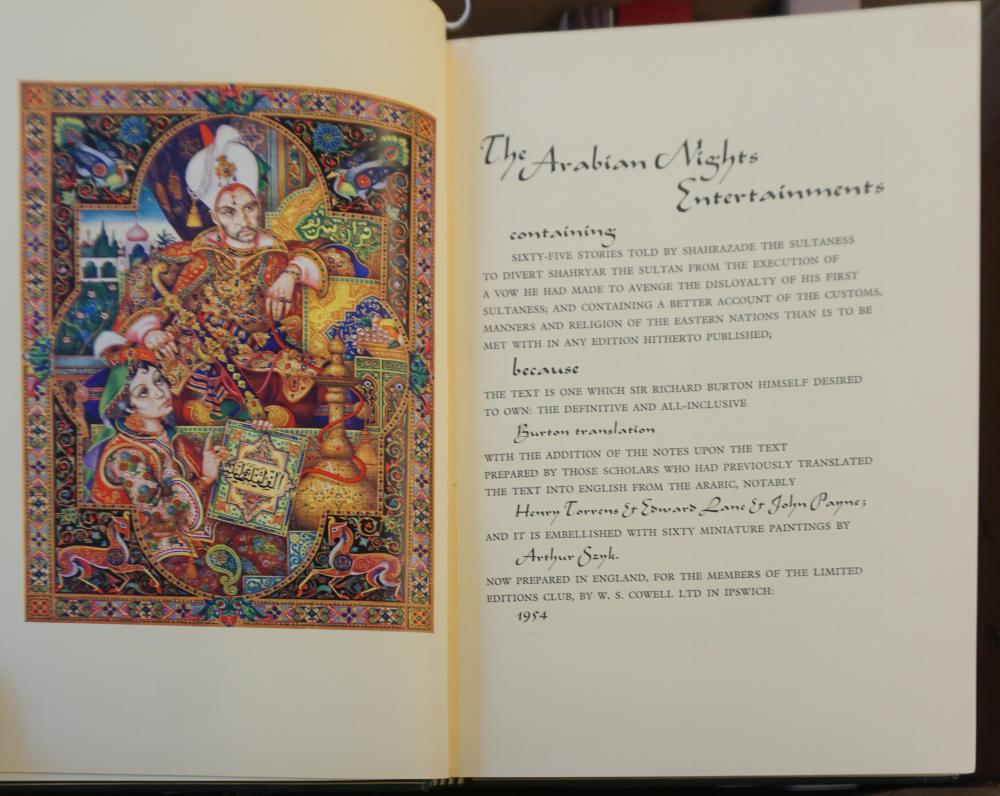 The Arabian Nights
Entertainments
containing
SIXTY-FIVE STORIES TOLD BY SHAHRAZADE THE SULTANESS
TO DIVERT SHAHRYAR THE SULTAN FROM THE EXECUTION OF
A VOW HE HAD MADE TO AVENGE THE DISLOYALTY OF HIS FIRST
SULTANESS; AND CONTAINING A BETTER ACCOUNT OF THE CUSTOMS,
MANNERS AND RELIGION OF THE EASTERN NATIONS THAN IS TO BE
MET WITH IN ANY EDITION HITHERTO PUBLISHED;
because
THE TEXT IS ONE WHICH SIR RICHARD BURTON HIMSELF DESIRED
TO OWN: THE DEFINITIVE AND ALL-INCLUSIVE
Burton translation
WITH THE ADDITION OF THE NOTES UPON THE TEXT
PREPARED BY THOSE SCHOLARS WHO HAD PREVIOUSLY TRANSLATED
THE TEXT INTO ENGLISH FROM THE ARABIC, NOTABLY
Henry Torrens & Edward Lane & John Payne;
AND IT IS EMBELLISHED WITH SIXTY MINIATURE PAINTINGS BY
Arthur Szyk.
NOW PREPARED IN ENGLAND, FOR THE MEMBERS OF THE LIMITED
EDITIONS CLUB, BY W. S. COWELL LTD IN IPSWICH:
1954